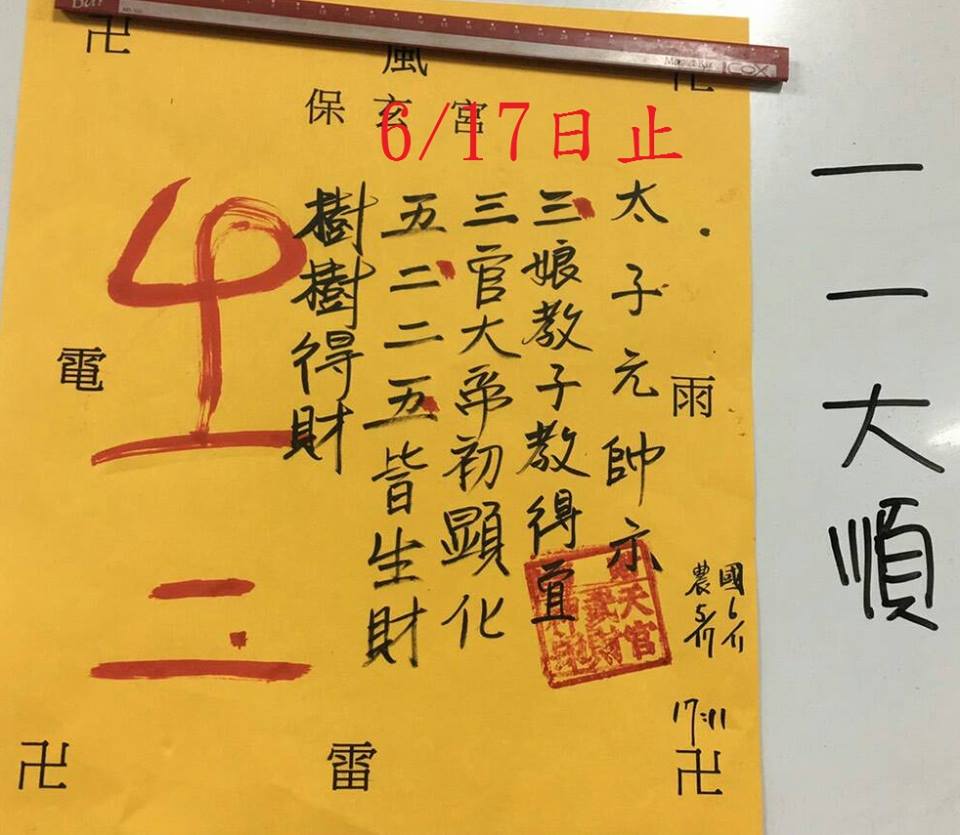 卍
風
卍
保玄宮
6/17日止
太子元帥示
三娘教子教得宜
三官大帝初顯化
五二二五皆生財
樹樹得財
雨
電
國6/
農5/
17:11
天官
武財
卍
雷
卍
COX
一一大順
二